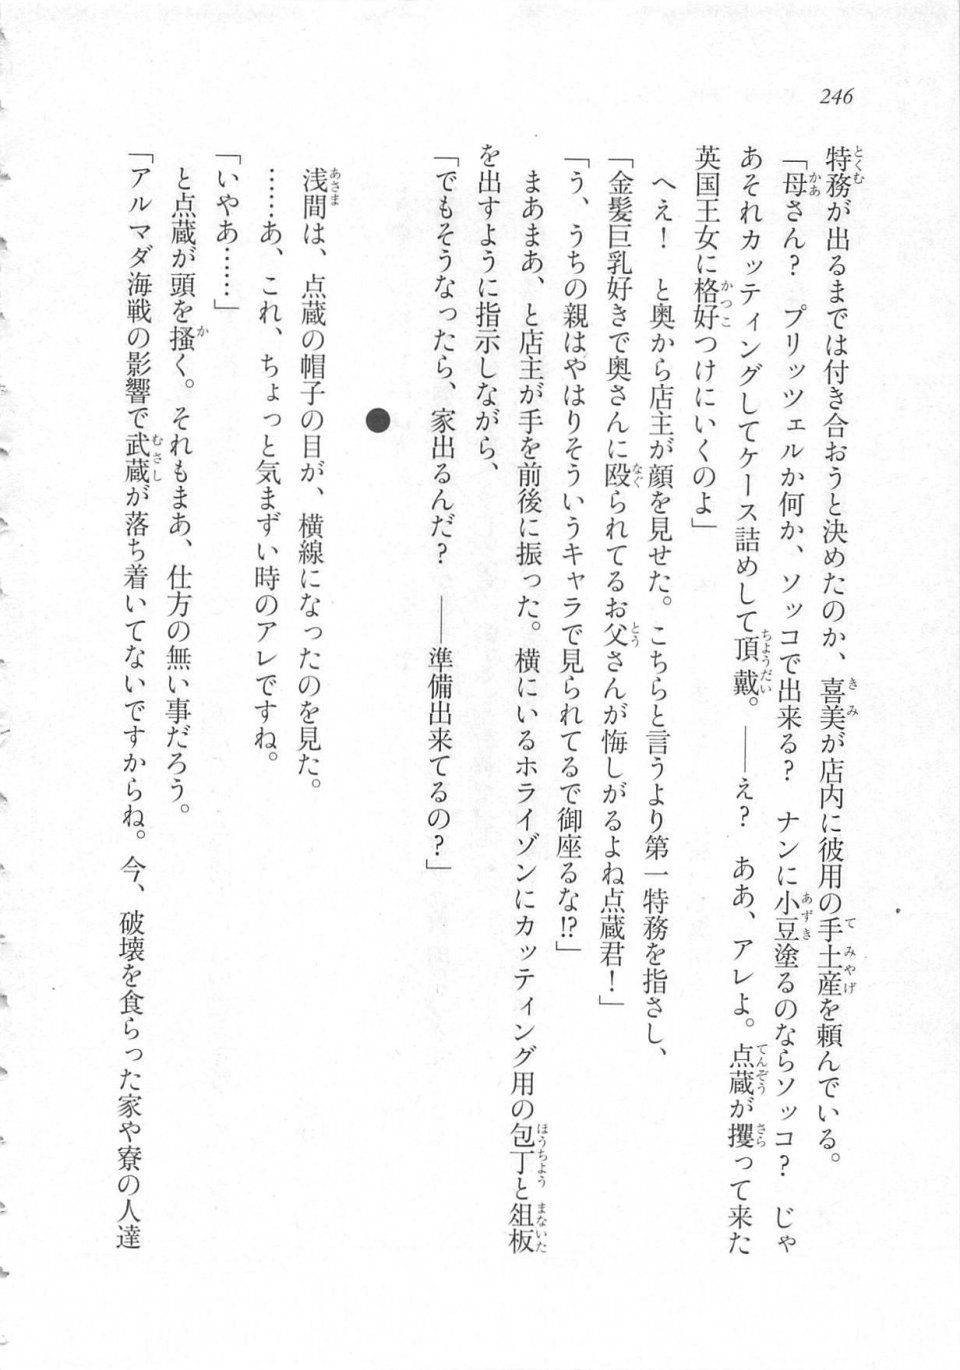 246
特務が出るまでは付き合おうと決めたのか、喜美が店内に彼用の手土産を頼んでいる。
「母さん？　プリッツェルか何か、ソッコで出来る？　ナンに小豆塗るのならソッコ？　じゃ
あそれカッティングしてケース詰めして頂戴。――え？　ああ、アレよ。点蔵が攫って来た
英国王女に格好つけにいくのよ」
　へえ！　と奥から店主が顔を見せた。こちらと言うより第一特務を指さし、
「金髪巨乳好きで奥さんに殴られてるお父さんが悔しがるよね点蔵君！」
「う、うちの親はやはりそういうキャラで見られてるで御座るな!?」
　まあまあ、と店主が手を前後に振った。横にいるホライゾンにカッティング用の包丁と俎板
を出すように指示しながら、
「でもそうなったら、家出るんだ？　――準備出来てるの？」
●
　浅間は、点蔵の帽子の目が、横線になったのを見た。
　……あ、これ、ちょっと気まずい時のアレですね。
「いやあ……」
　と点蔵が頭を掻く。それもまあ、仕方の無い事だろう。
「アルマダ海戦の影響で武蔵が落ち着いてないですからね。今、破壊を食らった家や寮の人達